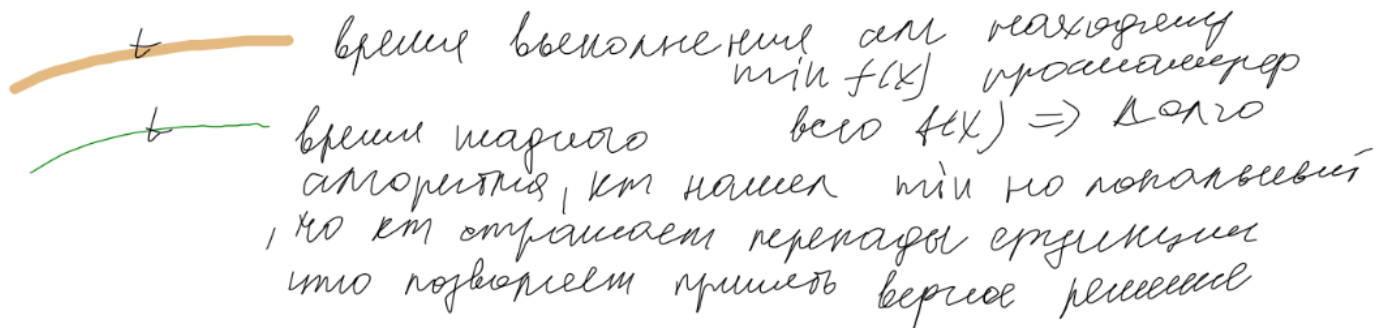 t время выполнения алг находящу
min f(x) просматрев
t время жадного всю f(x) => Долго
алгоритма, кт нашел min но локальный
, но кт отражает перепады функции
что позволяет принять верное решение